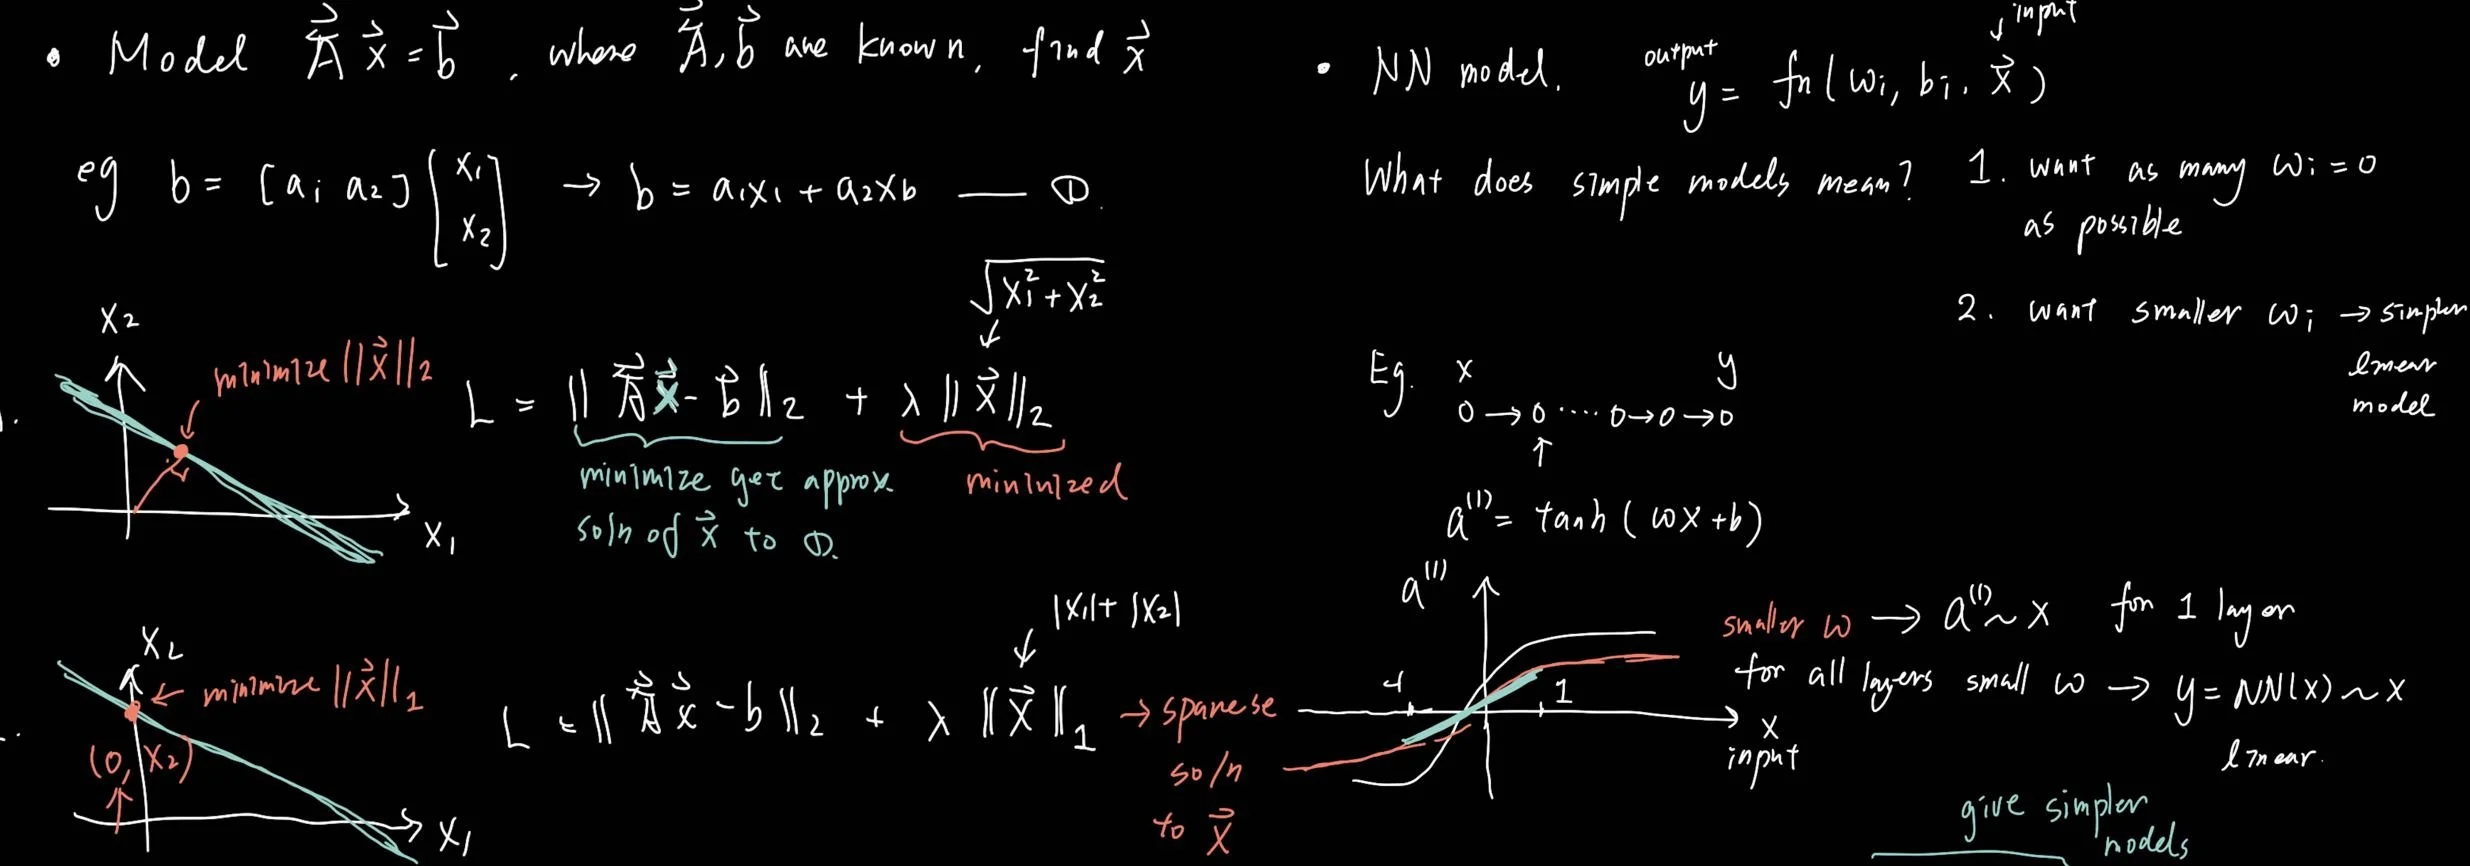 • Model A⃗ x⃗ = b⃗ , where A⃗, b⃗ are known, find x⃗
eg b = [a₁ a₂] [x₁ x₂] → b = a₁x₁ + a₂xb —— ①.
√x₁² + x₂²
x₂
minimize ||x⃗||₂
L = || A⃗x⃗ - b⃗ ||₂ + λ || x⃗ ||₂
minimize get approx.
soln of x⃗ to ①.
minimized
x₁
|x₁| + |x₂|
x₂
minimize ||x⃗||₁
(0, x₂)
L = || A⃗ x⃗ - b ||₂ + λ ||x⃗||₁ → sparese
soln
to x⃗
x₁
• NN model.
output
input
y = fn( wᵢ, bᵢ, x⃗ )
What does simple models mean?
1. want as many wᵢ = 0
as possible
2. want smaller wᵢ → simpler
linear
model
Eg. x y
0 → 0 ···· 0 → 0 → 0
a⁽¹⁾ = tanh ( wx + b )
a⁽¹⁾
-1
1
x
input
smaller w → a⁽¹⁾ ~ x for 1 layer
for all layers small w → y = NN(x) ~ x
linear.
give simpler
models